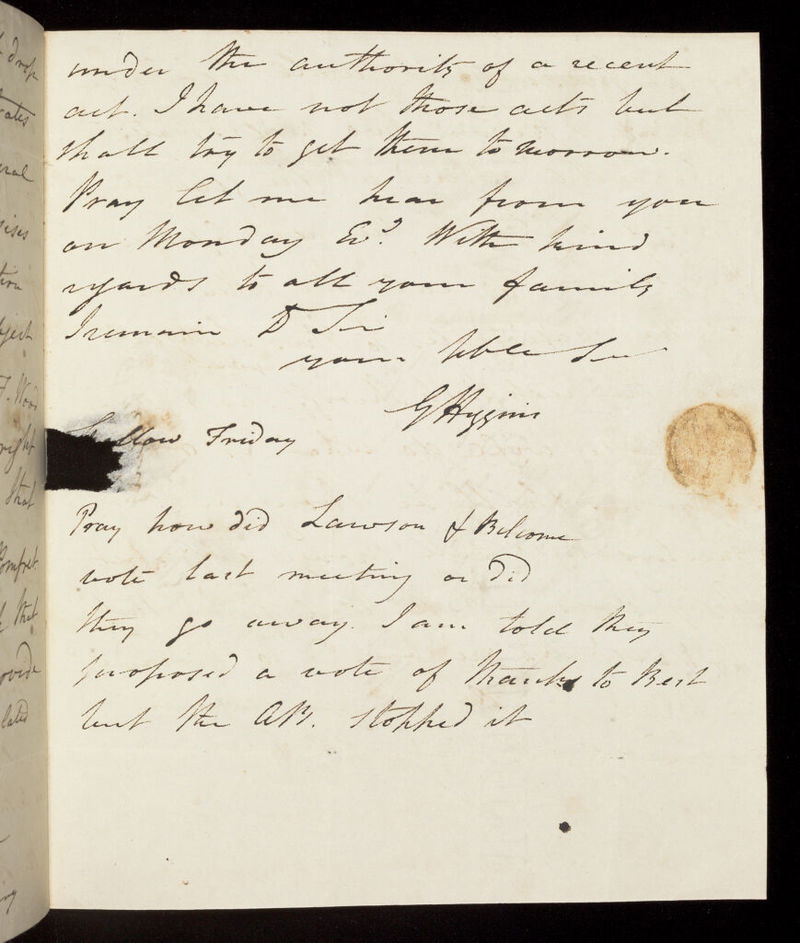 under the authority of a recent
act. I have not those acts but
shall try to get them tomorrow.
Pray let me hear from you
on Monday Evg. With kind
regards to all your family
I remain Dr Sir
your hble Ser
G Higgins
Skellow Friday
Pray how did Lawson & Belcome
vote last meeting or did
they go away. I am told they
proposed a vote of thanks to Best
but the ABp. stopped it
drop
rates
eral
ction
bject
F. Wood
right
that
Pomfret
that
ovide
lated